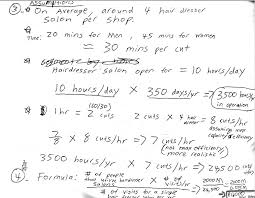 Assumptions
③ ☆ On Average, around 4 hair dresser
salon per shop.
☆
Time: 20 mins for Men, 45 mins for women
≈ 30 mins per cut
☆
Hairdresser salon open for = 10 hours/day
10 hours/day × 350 days/yr ⇒ 3500 hours/yr
in operation
☆ 1 hr = 2 cuts (60/30) 2 cuts × 4 hair = 8 cuts/hr
Assuming max
capacity/efficiency
7/8 × 8 cuts/hr ⇒ 7 cuts/hr
(not max efficiency
more realistic)
3500 hours/yr × 7 cuts/hr ⇒ 24500 cuts/yr
④ Formula: # of people × # of
visits/yr
# of visits for a single